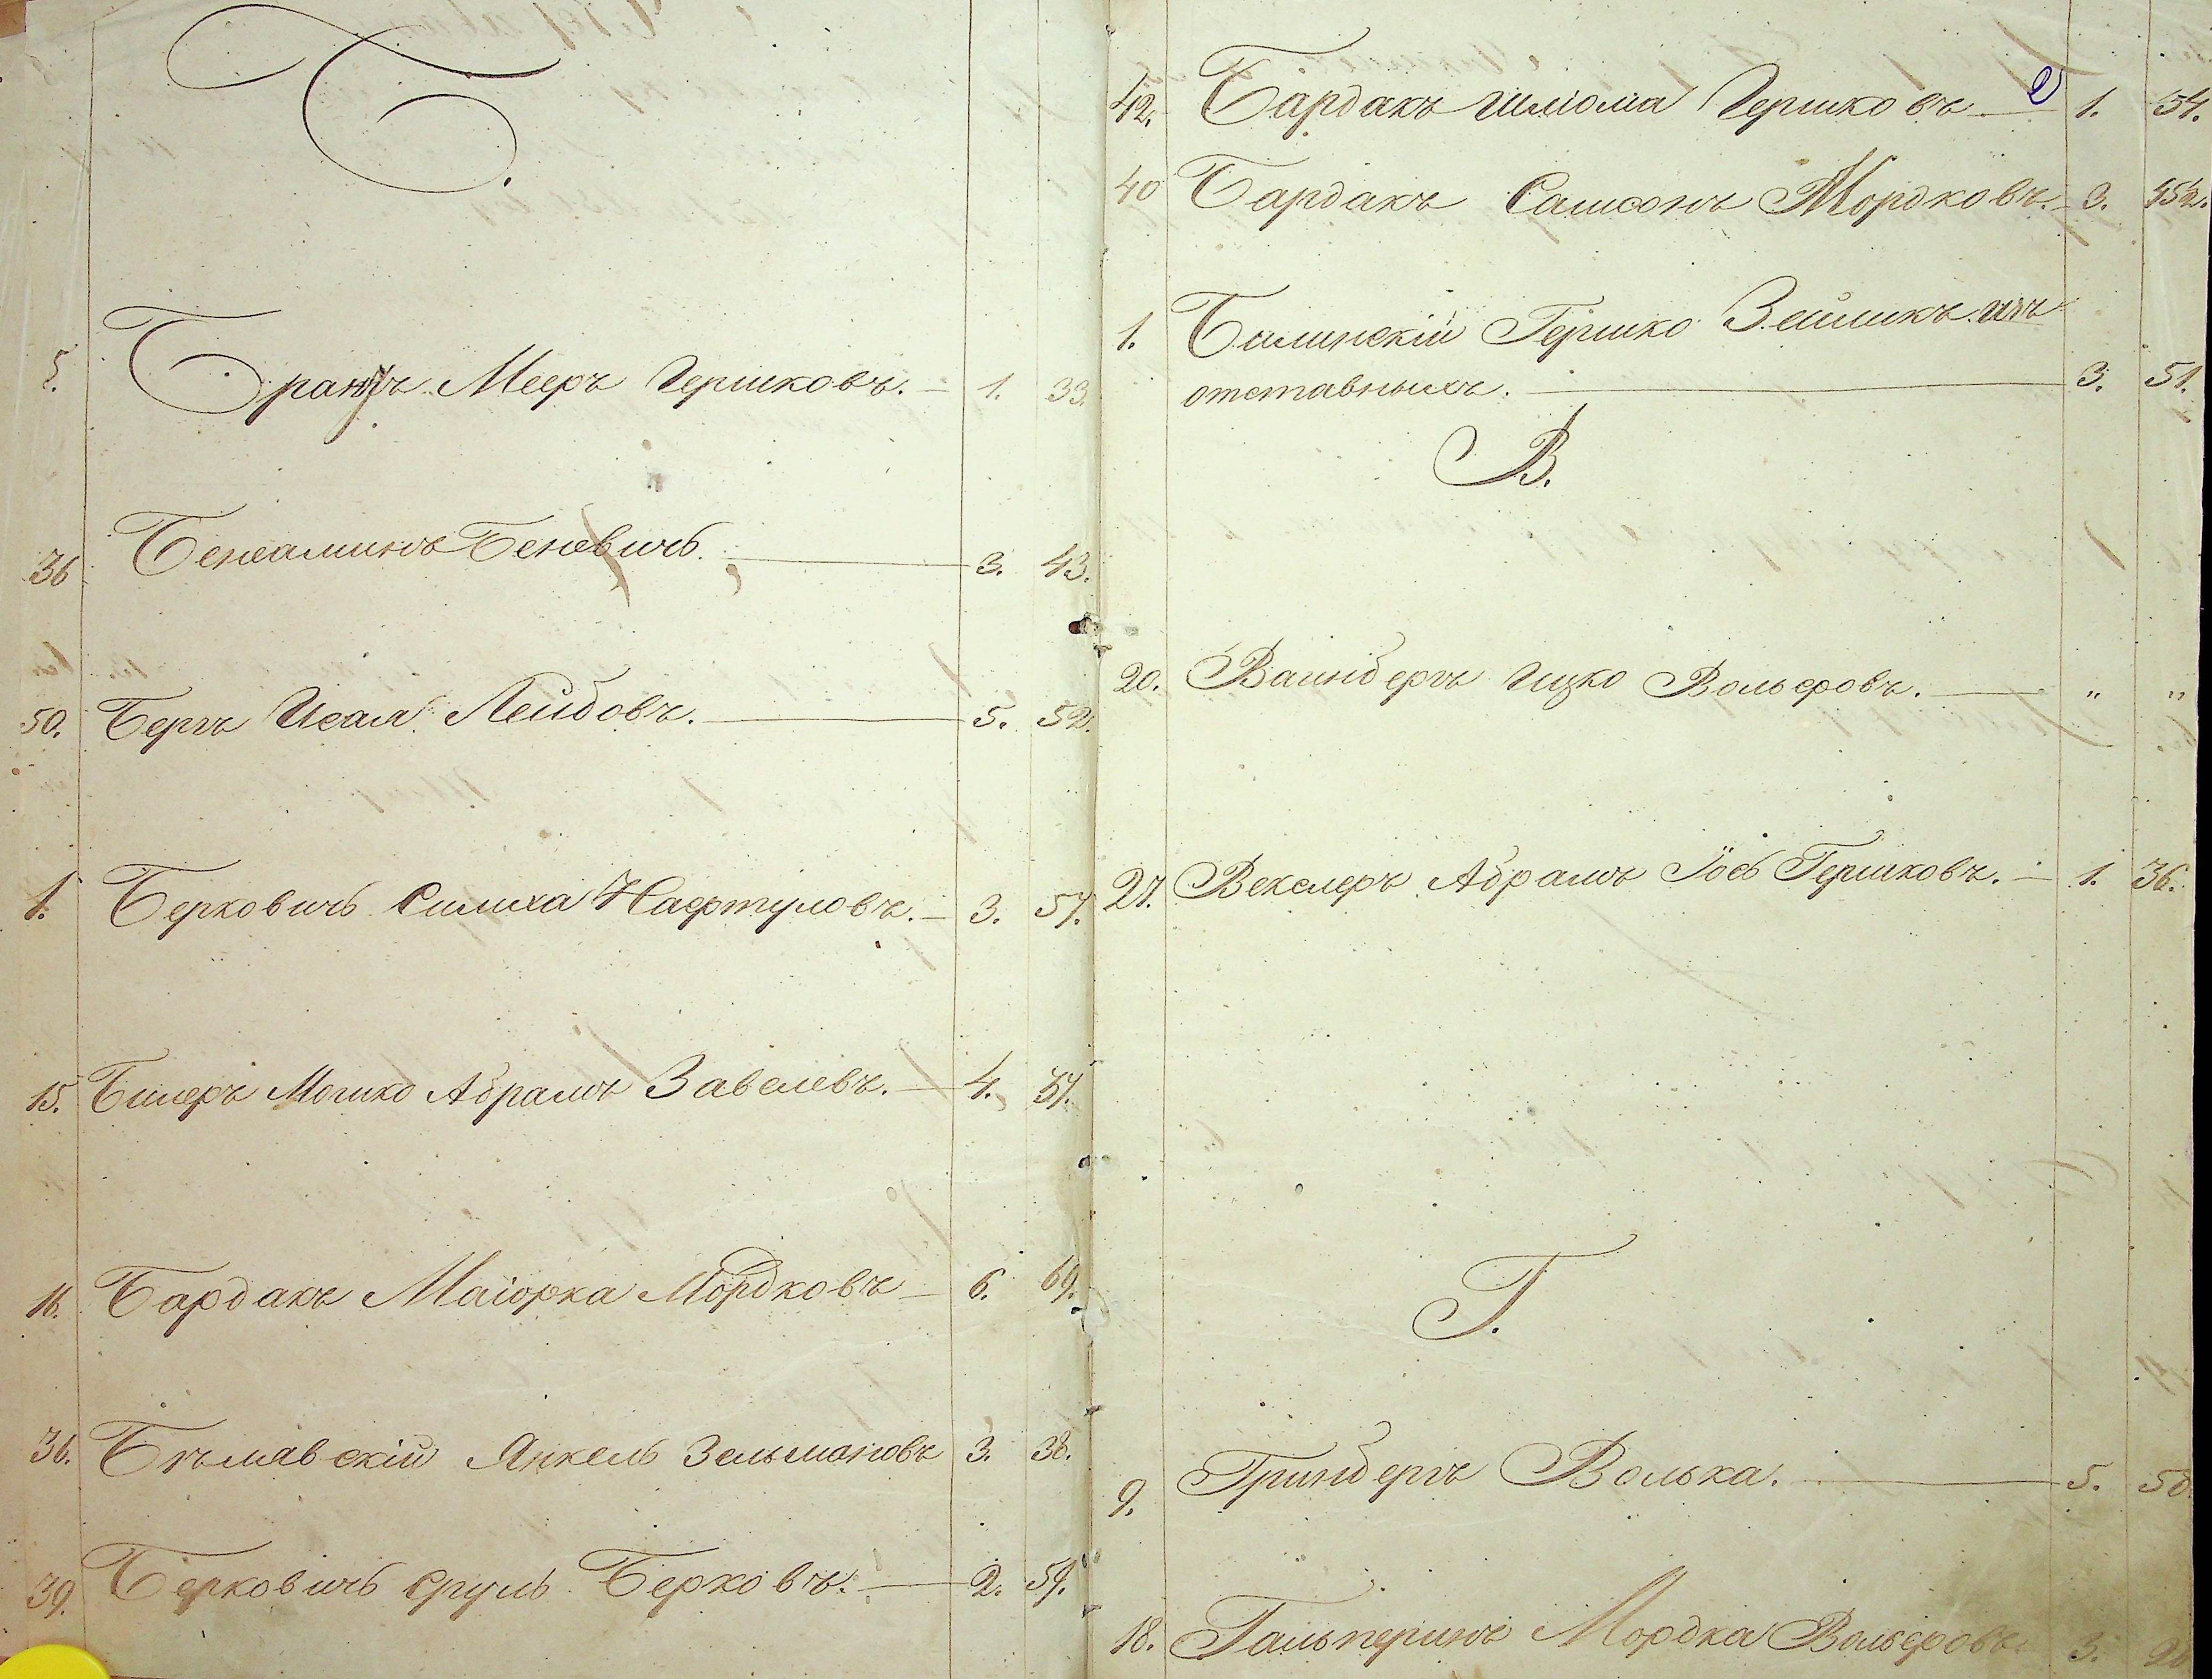 Б.
5. Мееръ Гершковъ. — 1. 33.
36 Бенеаминъ Беневичъ. — 3. 43.
50. Бергъ Исая Лейбовъ. — 5. 52.
1. Берковичъ Симха Нафтуловъ. — 3. 57.
15. Билеръ Мошко Абрамъ Завелевъ. — 4.
16. Бардакъ Маіорка Мордковъ — 6. 69.
36. Бѣлявскій Янкель Зельмановъ 3. 38.
39. Берковичъ Сруль Берковъ. — 2. 59.
2
42. Бардакъ Шліома Гершковъ — 1. 54.
40 Бардакъ Самсонъ Мордковъ. — 3.
1. Билинскій Гершко Зейликъ изъ
отставныхъ. — 3. 51.
В.
20. Ваинбергъ Ицко Вольфовъ. — " "
27. Векслеръ Абрамъ Іось Гершковъ. — 1. 36.
Г.
9. Гринбергъ Волька. — 5. 58.
18. Гальперинъ Мордка Вольфовъ 3.